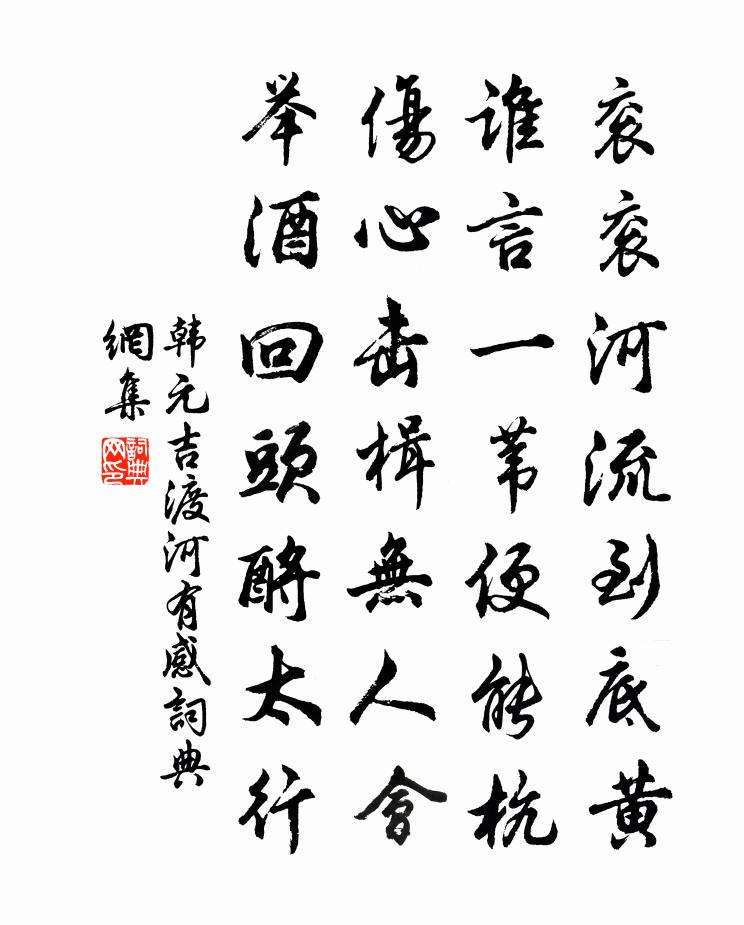 衮衮河流到底黄
谁言一苇便能杭
傷心击楫無人會
举酒回頭酹太行
韩元吉渡河有感詞典
網集
詞典
网印